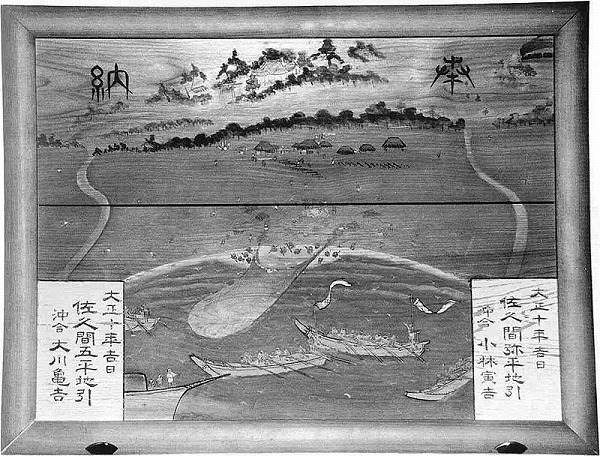 奉納
大正十年吉日
佐久間弥平地引
沖合 小林寅吉
大正十年吉日
佐久間五平地引
沖合 大川亀吉